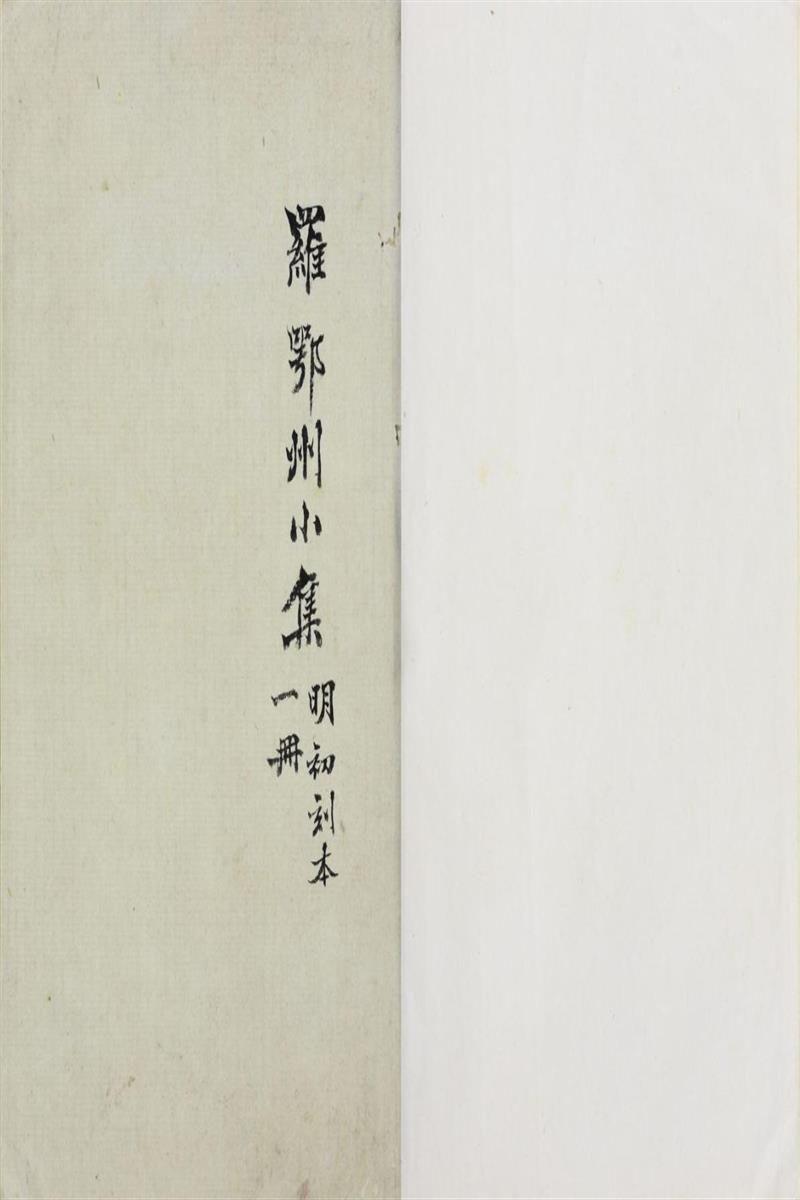 羅鄂州小集
明初刻本
一冊